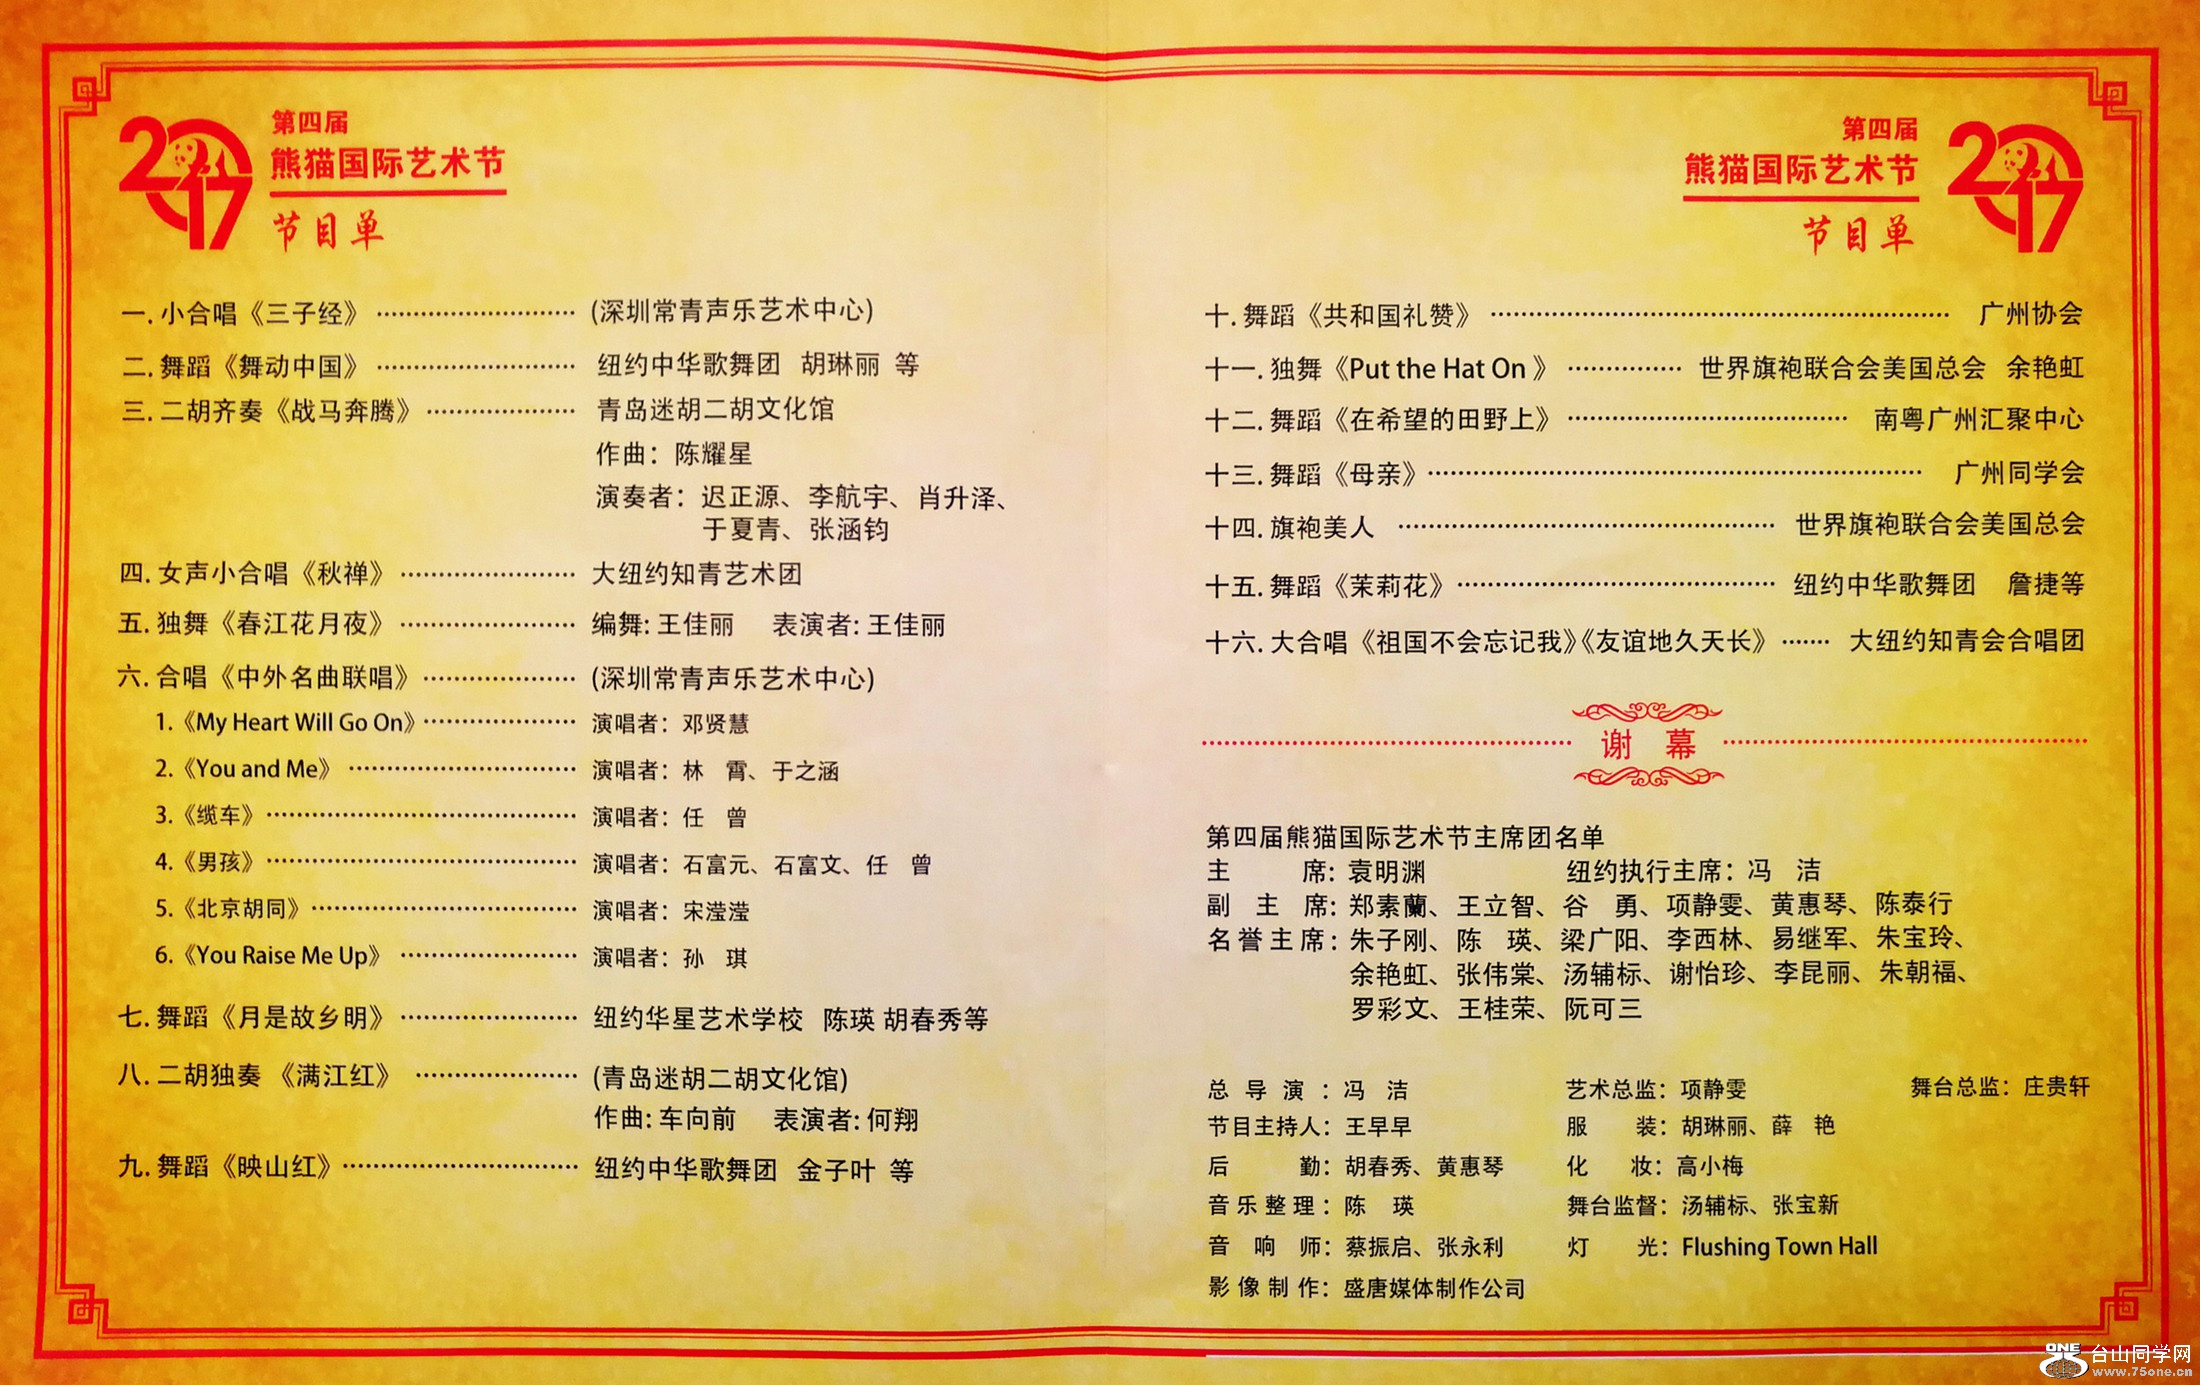 2017
第四届
熊猫国际艺术节
节目单
一. 小合唱《三子经》 ………………… (深圳常青声乐艺术中心)
二. 舞蹈《舞动中国》 ………………… 纽约中华歌舞团 胡琳丽 等
三. 二胡齐奏《战马奔腾》 …………… 青岛迷胡二胡文化馆
作曲：陈耀星
演奏者：迟正源、李航宇、肖升泽、
于夏青、张涵钧
四. 女声小合唱《秋禅》 ……………… 大纽约知青艺术团
五. 独舞《春江花月夜》 ……………… 编舞: 王佳丽 表演者: 王佳丽
六. 合唱《中外名曲联唱》 …………… (深圳常青声乐艺术中心)
1.《My Heart Will Go On》 …………… 演唱者：邓贤慧
2.《You and Me》 …………………… 演唱者：林 霄、于之涵
3.《缆车》 …………………………… 演唱者：任 曾
4.《男孩》 …………………………… 演唱者：石富元、石富文、任 曾
5.《北京胡同》 ……………………… 演唱者：宋滢滢
6.《You Raise Me Up》 ……………… 演唱者：孙 琪
七. 舞蹈《月是故乡明》 ……………… 纽约华星艺术学校 陈瑛 胡春秀等
八. 二胡独奏 《满江红》 …………… (青岛迷胡二胡文化馆)
作曲: 车向前 表演者: 何翔
九. 舞蹈《映山红》 …………………… 纽约中华歌舞团 金子叶 等
第四届
熊猫国际艺术节
节目单
2017
十. 舞蹈《共和国礼赞》 ……………………………………… 广州协会
十一. 独舞《Put the Hat On 》 ………… 世界旗袍联合会美国总会 余艳虹
十二. 舞蹈《在希望的田野上》 ……………………… 南粤广州汇聚中心
十三. 舞蹈《母亲》 ………………………………………… 广州同学会
十四. 旗袍美人 ………………………………… 世界旗袍联合会美国总会
十五. 舞蹈《茉莉花》 …………………………… 纽约中华歌舞团 詹捷等
十六. 大合唱《祖国不会忘记我》《友谊地久天长》 …… 大纽约知青会合唱团
谢 幕
第四届熊猫国际艺术节主席团名单
主 席: 袁明渊 纽约执行主席：冯 洁
副 主 席: 郑素蘭、王立智、谷 勇、项静雯、黄惠琴、陈泰行
名誉主席: 朱子刚、陈 瑛、梁广阳、李西林、易继军、朱宝玲、
余艳虹、张伟棠、汤辅标、谢怡珍、李昆丽、朱朝福、
罗彩文、王桂荣、阮可三
总 导 演 ：冯 洁 艺术总监：项静雯 舞台总监：庄贵轩
节目主持人：王早早 服 装：胡琳丽、薛 艳
后 勤：胡春秀、黄惠琴 化 妆：高小梅
音乐整理：陈 瑛 舞台监督：汤辅标、张宝新
音 响 师：蔡振启、张永利 灯 光：Flushing Town Hall
影像制作：盛唐媒体制作公司
ONE 台山同学网
www.75one.cn